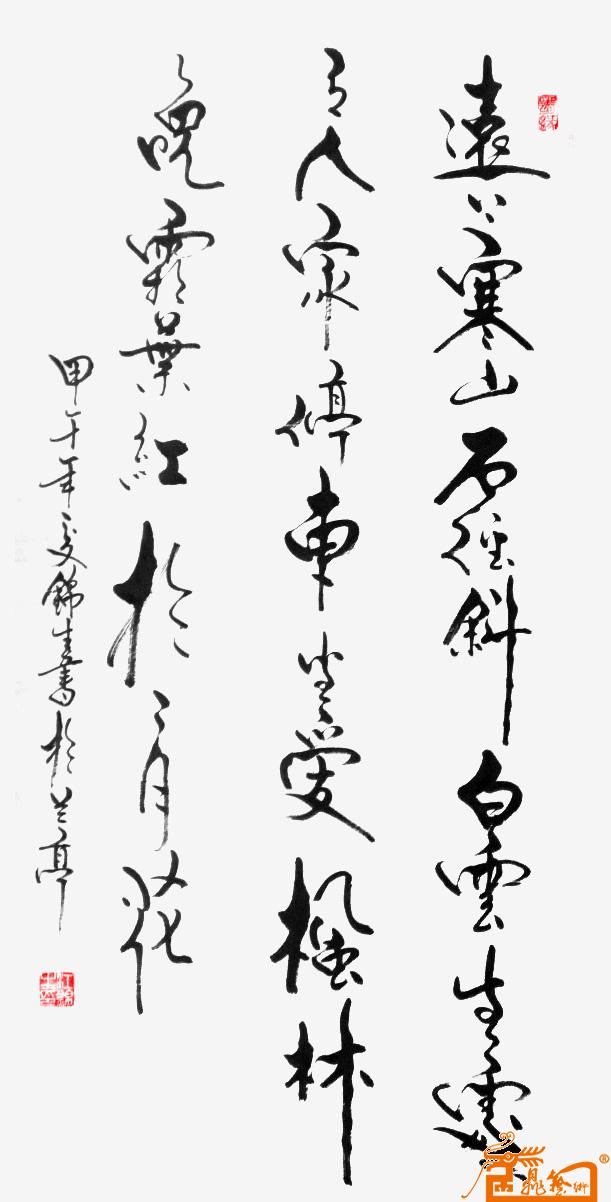 遠上寒山石徑斜白雲生處
有人家停車坐愛楓林
晚霜葉紅於二月花
甲午年夏錦生書於兰亭